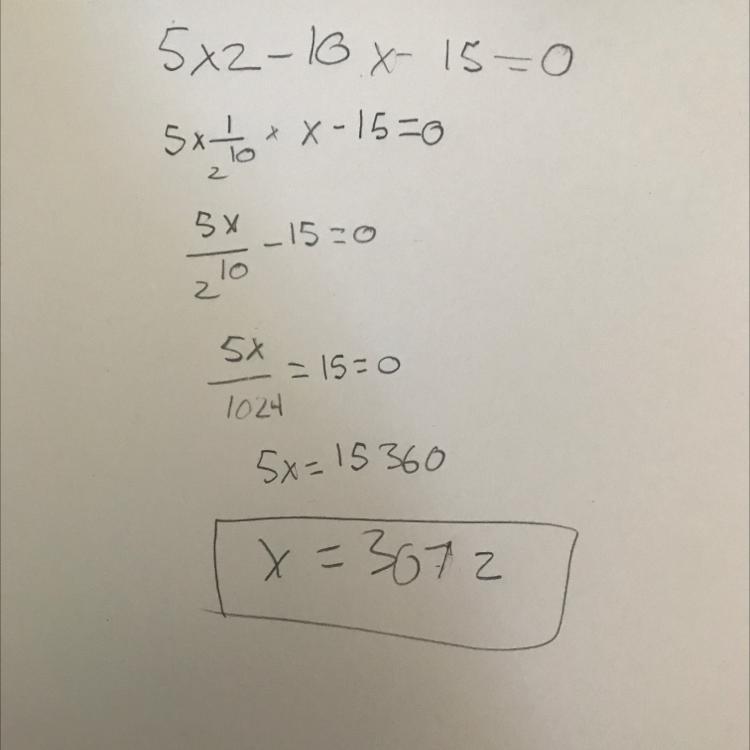 5x2-10x-15=0
5x 1/2^10 × x-15=0
5x/2^10 -15=0
5x/1024 =15=0
5x=15360
x=3072